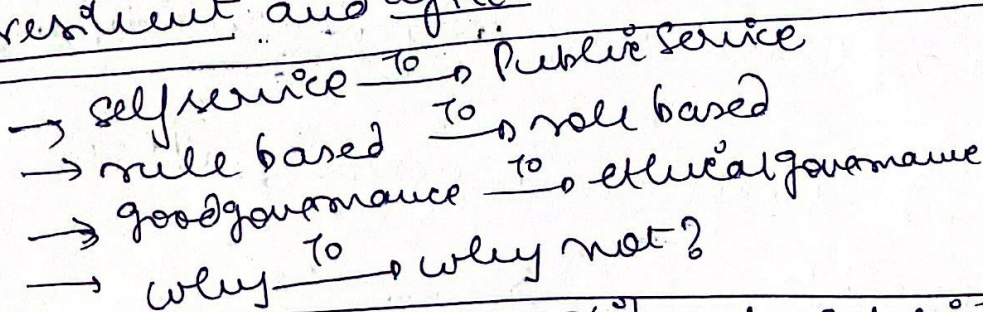 resilient and
→ self service To → Public Service
→ rule based To → role based
→ good governance To → ethical governance
→ why To → why not?